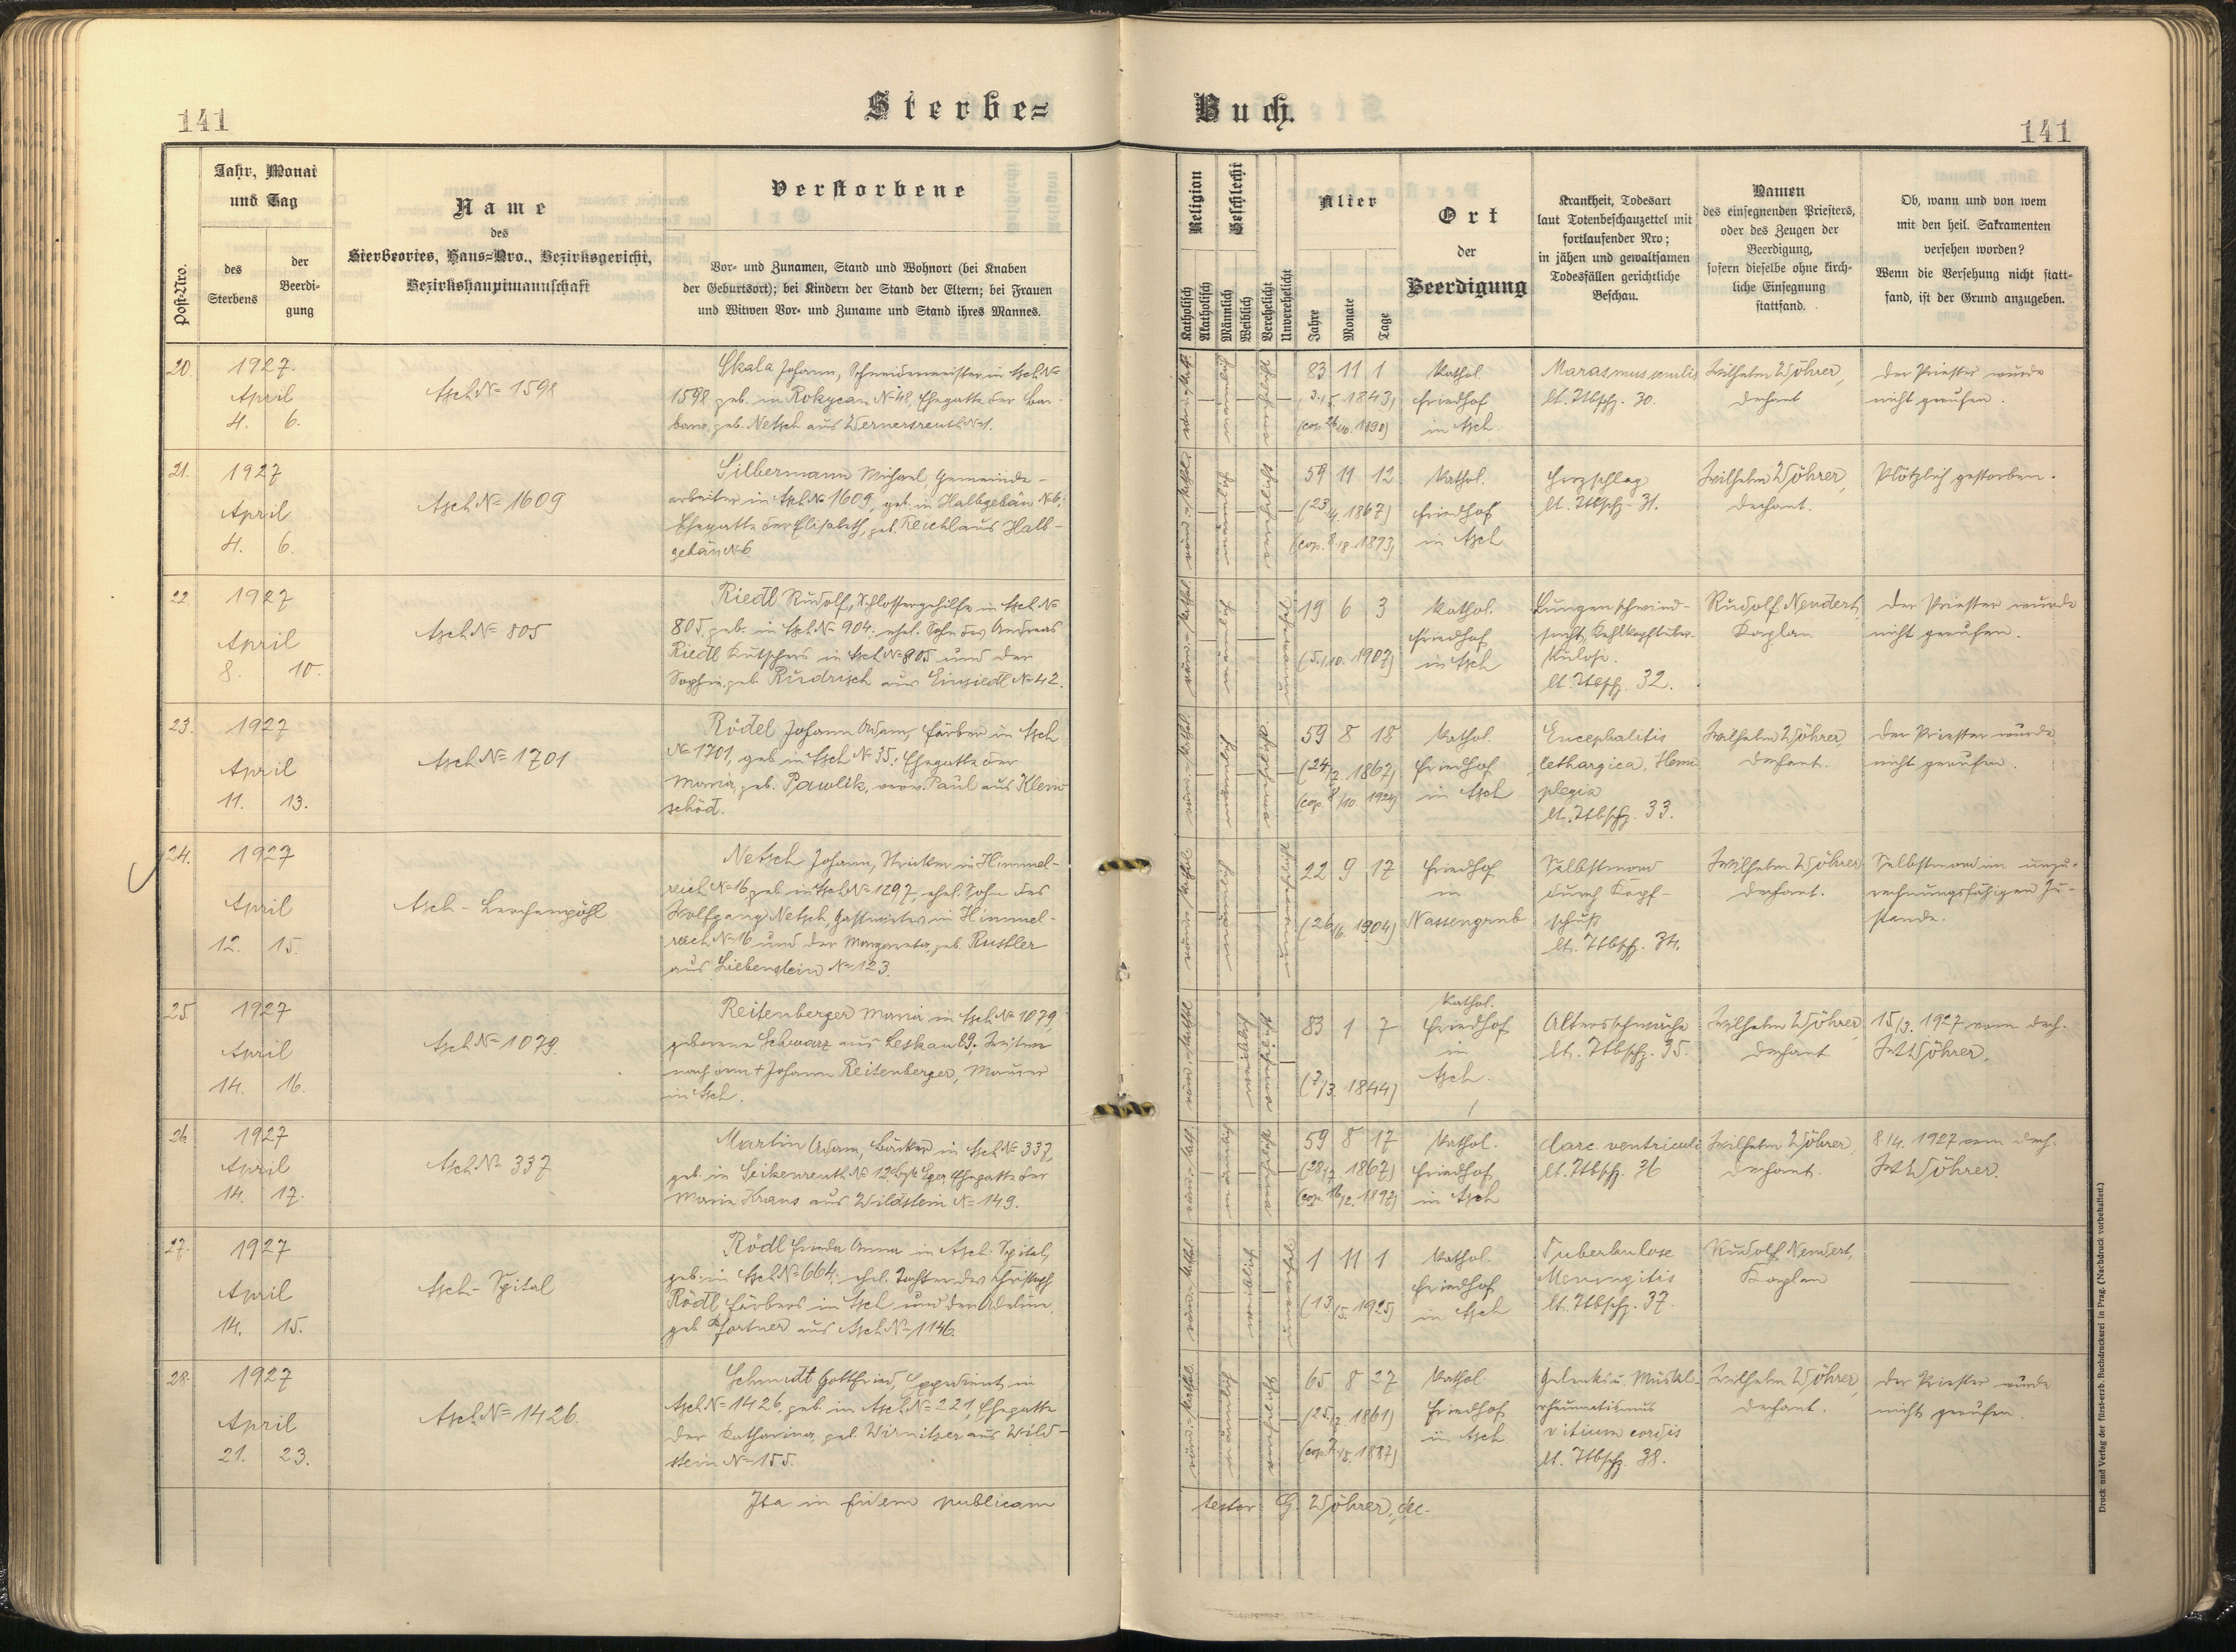 141
Sterbe=
Buch.
141
Post-Nro.
Jahr, Monat
und Tag
des
Sterbens
der
Beerdi-
gung
Name
des
Sterbeortes, Haus=Nro., Bezirksgericht,
Bezirkshauptmannschaft
Verstorbene
Vor- und Zunamen, Stand und Wohnort (bei Knaben
der Geburtsort); bei Kindern der Stand der Eltern; bei Frauen
und Witwen Vor- und Zuname und Stand ihres Mannes.
Religion
Katholisch
Akatholisch
Geschlecht
Männlich
Weiblich
Verehelicht
Unverehelicht
Alter
Jahre
Monate
Tage
Ort
der
Beerdigung
Krankheit, Todesart
laut Totenbeschauzettel mit
fortlaufender Nro;
in jähen und gewaltsamen
Todesfällen gerichtliche
Beschau.
Namen
des einsegnenden Priesters,
oder des Zeugen der
Beerdigung,
sofern dieselbe ohne kirch-
liche Einsegnung
stattfand.
Ob, wann und von wem
mit den heil. Sakramenten
versehen worden?
Wenn die Versehung nicht statt-
fand, ist der Grund anzugeben.
20.
1927.
April
4. 6.
Asch № 1598
Skala Johann, Schneidermeister in Asch №
1598 geb. in Rokycan № 48, Ehegatte der Bar-
bara, geb. Netsch aus Wernersreuth № 1.
83 11 1
1843)
(cop. 1890)
Kathol.
Friedhof
in Asch
Marasmus senilis
lt. Ttbschz. 30.
Wilhelm Wöhrer,
Dechant
Der Priester wurde
nicht gerufen.
21.
1927
April
4. 6.
Asch № 1609
Silbermann Michael, Gemeinde-
arbeiter in Asch № 1609, geb. in Halbgebäu № 6;
Ehegatte der Elisabeth, geb. Reichl aus Halb-
gebäu № 6
59 11 12
(23/4. 1867)
(cop. 1893)
Kathol.
Friedhof
in Asch
Herzschlag
lt. Ttbschz. 31.
Wilhelm Wöhrer,
Dechant.
Plötzlich gestorben.
22.
1927
April
8. 10.
Asch № 805
Riedl Rudolf, Schlossergehilfe in Asch №
805, geb. in Asch № 904; ehel. Sohn des Andreas
Riedl Kutschers in Asch № 805 und der
Sophie, geb. Rudrisch aus Einsiedl № 42.
19 6 3
(5./10. 1907)
Kathol.
Friedhof
in Asch
Lungenschwind-
sucht, Kehlkopftuber-
kulose.
lt. Ttbschz. 32.
Rudolf Nendert,
Kaplan
Der Priester wurde
nicht gerufen.
23.
1927
April
11. 13.
Asch № 1701
Rödel Johann Adam, Färber in Asch
№ 1701, geb. in Asch № 35; Ehegatte der
Maria, geb. Pawlik, verw. Paul aus Klein-
schöd.
59 8 18
(24/7. 1867)
(cop. 8/10. 1924)
Kathol.
Friedhof
in Asch
Encephalitis
lethargica, Hemi
plegia
lt. Ttbschz. 33.
Wilhelm Wöhrer,
Dechant.
Der Priester wurde
nicht gerufen.
24.
1927
April
12. 15.
Asch - Lerchenpöhl
Netsch Johann, Stricker in Himmel-
reich № 16, geb. in Asch № 1297, ehel. Sohn des
Wolfgang Netsch, Gastwirtes in Himmel-
reich № 16 und der Margareta, geb. Rustler
aus Liebenstein № 123.
22 9 17
(26/6. 1904)
Friedhof
in
Nassengrub
Selbstmord
durch Kopf-
schuß
lt. Ttbschz. 34.
Wilhelm Wöhrer
Dechant.
Selbstmord im unzu-
rechnungsfähigen Zu-
stande.
25.
1927
April
14. 16.
Asch № 1079.
Reitenberger Maria in Asch № 1079,
geborene Schwarz aus Leskau 69; Witwe
nach dem + Johann Reitenberger, Maurer
in Asch.
83 1 7
(7/3. 1844)
Kathol.
Friedhof
in
Asch.
Altersschwäche
lt. Ttbschz. 35.
Wilhelm Wöhrer,
Dechant
15/3. 1927 vom Dech.
W. Wöhrer.
26.
1927
April
14. 17.
Asch № 337
Martin Adam, Bäcker in Asch № 337,
geb. in Seikenreuth № 12 Bzk Eger Ehegatte der
Maria Kraus aus Wildstein № 149.
59 8 17
(28/7 1867)
(cop. 16/2. 1897)
Kathol.
Friedhof
in Asch
Carc. ventriculi
lt. Ttbschz. 36
Wilhelm Wöhrer,
Dechant.
8/4. 1927 vom Dech.
W. Wöhrer.
27.
1927
April
14. 15.
Asch - Spital
Rödl Frieda Anna in Asch-Spital,
geb. in Asch № 664; ehel. Tochter des Christoph
Rödl, Färbers in Asch und der Adeline,
geb. Pfortner aus Asch № 1146.
1 11 1
(13/5. 1925)
Kathol.
Friedhof
in Asch
Tuberkulose
Meningitis
lt. Ttbschz. 37.
Rudolf Nendert,
Kaplan
28.
1927
April
21. 23.
Asch № 1426.
Schmidt Gottfried, Expedient in
Asch № 1426, geb. in Asch № 221, Ehegatte
der Katharina, geb. Wirnitzer aus Wild-
stein № 155.
65 8 27
(25/7. 1861)
(cop. 1887)
Kathol.
Friedhof
in Asch
Gelenks u. Muskel-
rheumatismus
vitium cordis
lt. Ttbschz. 38.
Wilhelm Wöhrer,
Dechant.
Der Priester wurde
nicht gerufen.
Ita in fidem publicam
testor: G. Wöhrer, dec.
Druck und Verlag der fürst-erzb. Buchdruckerei in Prag. (Nachdruck vorbehalten.)